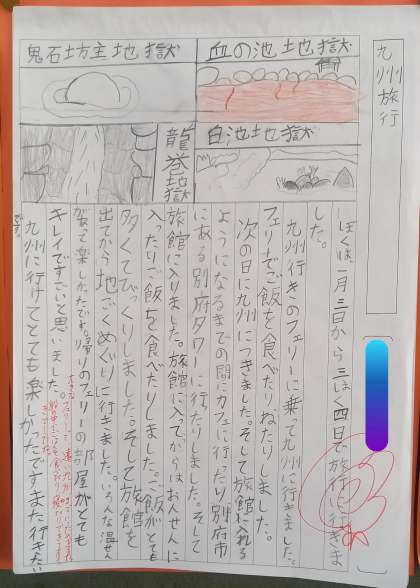 九州旅行
血の池地獄
鬼石坊主地獄
白池地獄
龍巻地獄
ぼくは、一月三日から三ぱく四日で旅行に行きま
した。
九州行きのフェリーに乗って九州に行きました。
フェリーでご飯を食べたりねたりしました。
次の日に九州につきました。そして旅館に入れる
ようになるまでの間にカフェに行ったり別府市
にある別府タワーに行ったりしました。そして
旅館に入りました。旅館に入ってからはおんせんに
入ったりご飯を食べたりしました。ご飯がとても
多くてびっくりしました。そして旅館を
出てから地ごくめぐりに行きました。いろんな温せん
があって楽しかったです。帰りのフェリーの部屋がとても
キレイですごいと思いました。
九州に行けてとても楽しかったですまた行きたい
です。